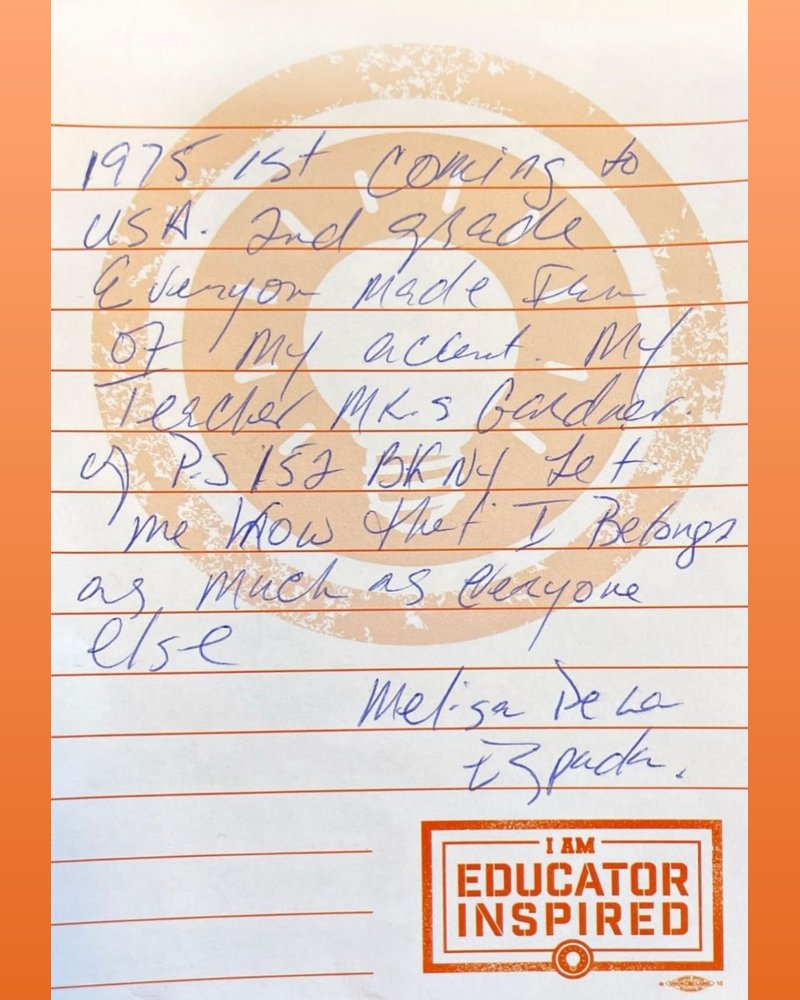 1975 1st coming to
USA. 2nd grade
Everyon made Fun
of my accent. My
Teacher MRs Gardner.
of P.S 152 BK NY Let
me know that I Belongs
as much as everyone
else
Melisa De La
Espada.
I AM
EDUCATOR
INSPIRED